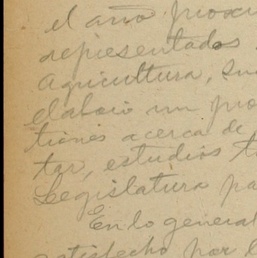 el año proxi
representados
Agricultura, Su
elaboró un pro
tiones acerca de
tar, estudios t
Legislatura pa
En lo general
satisfecho por l